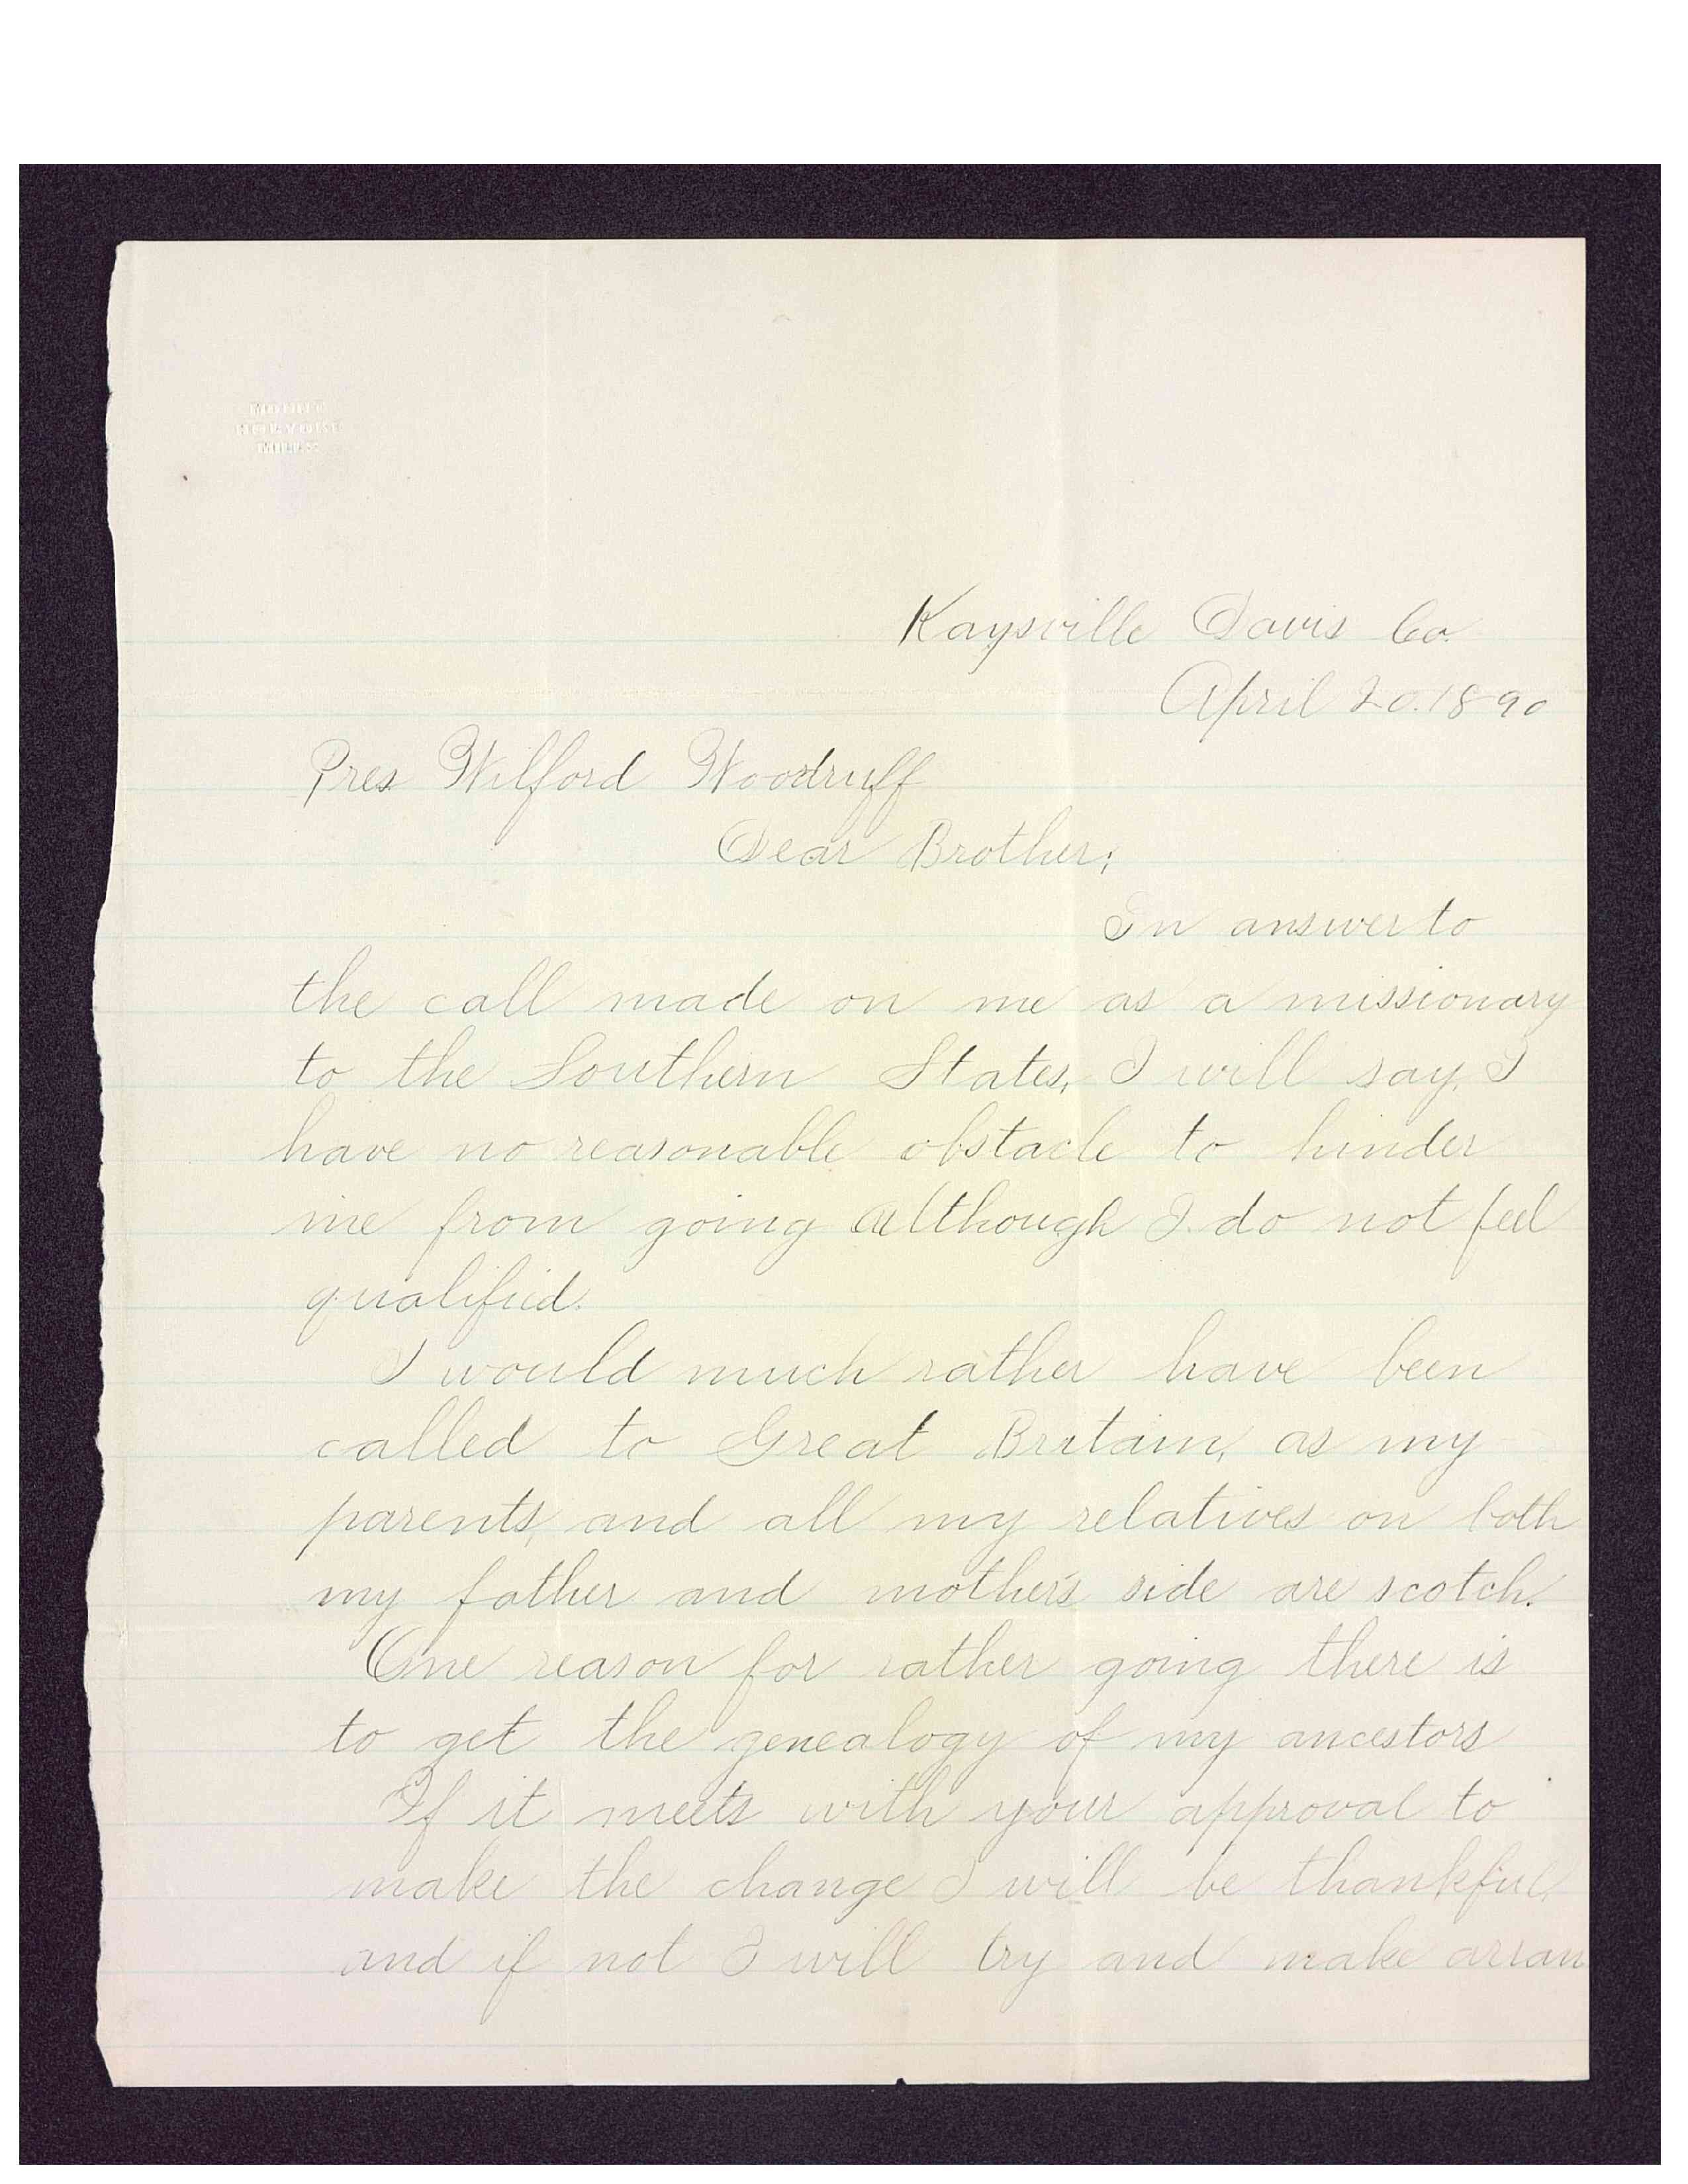 Kaysville Davis Co.
April 20. 1890
Pres Wilford Woodruff
Dear Brother;
In answer to
the call made on me as a missionary
to the Southern States, I will say, I
have no reasonable obstacle to hinder
me from going although I do not feel
qualified.
I would much rather have been
called to Great Britain, as my
parents, and all my relatives on both
my father and mother's side are scotch.
One reason for rather going there is
to get the genealogy of my ancestors
If it meets with your approval to
make the change I will be thankful,
and if not I will try and make arran